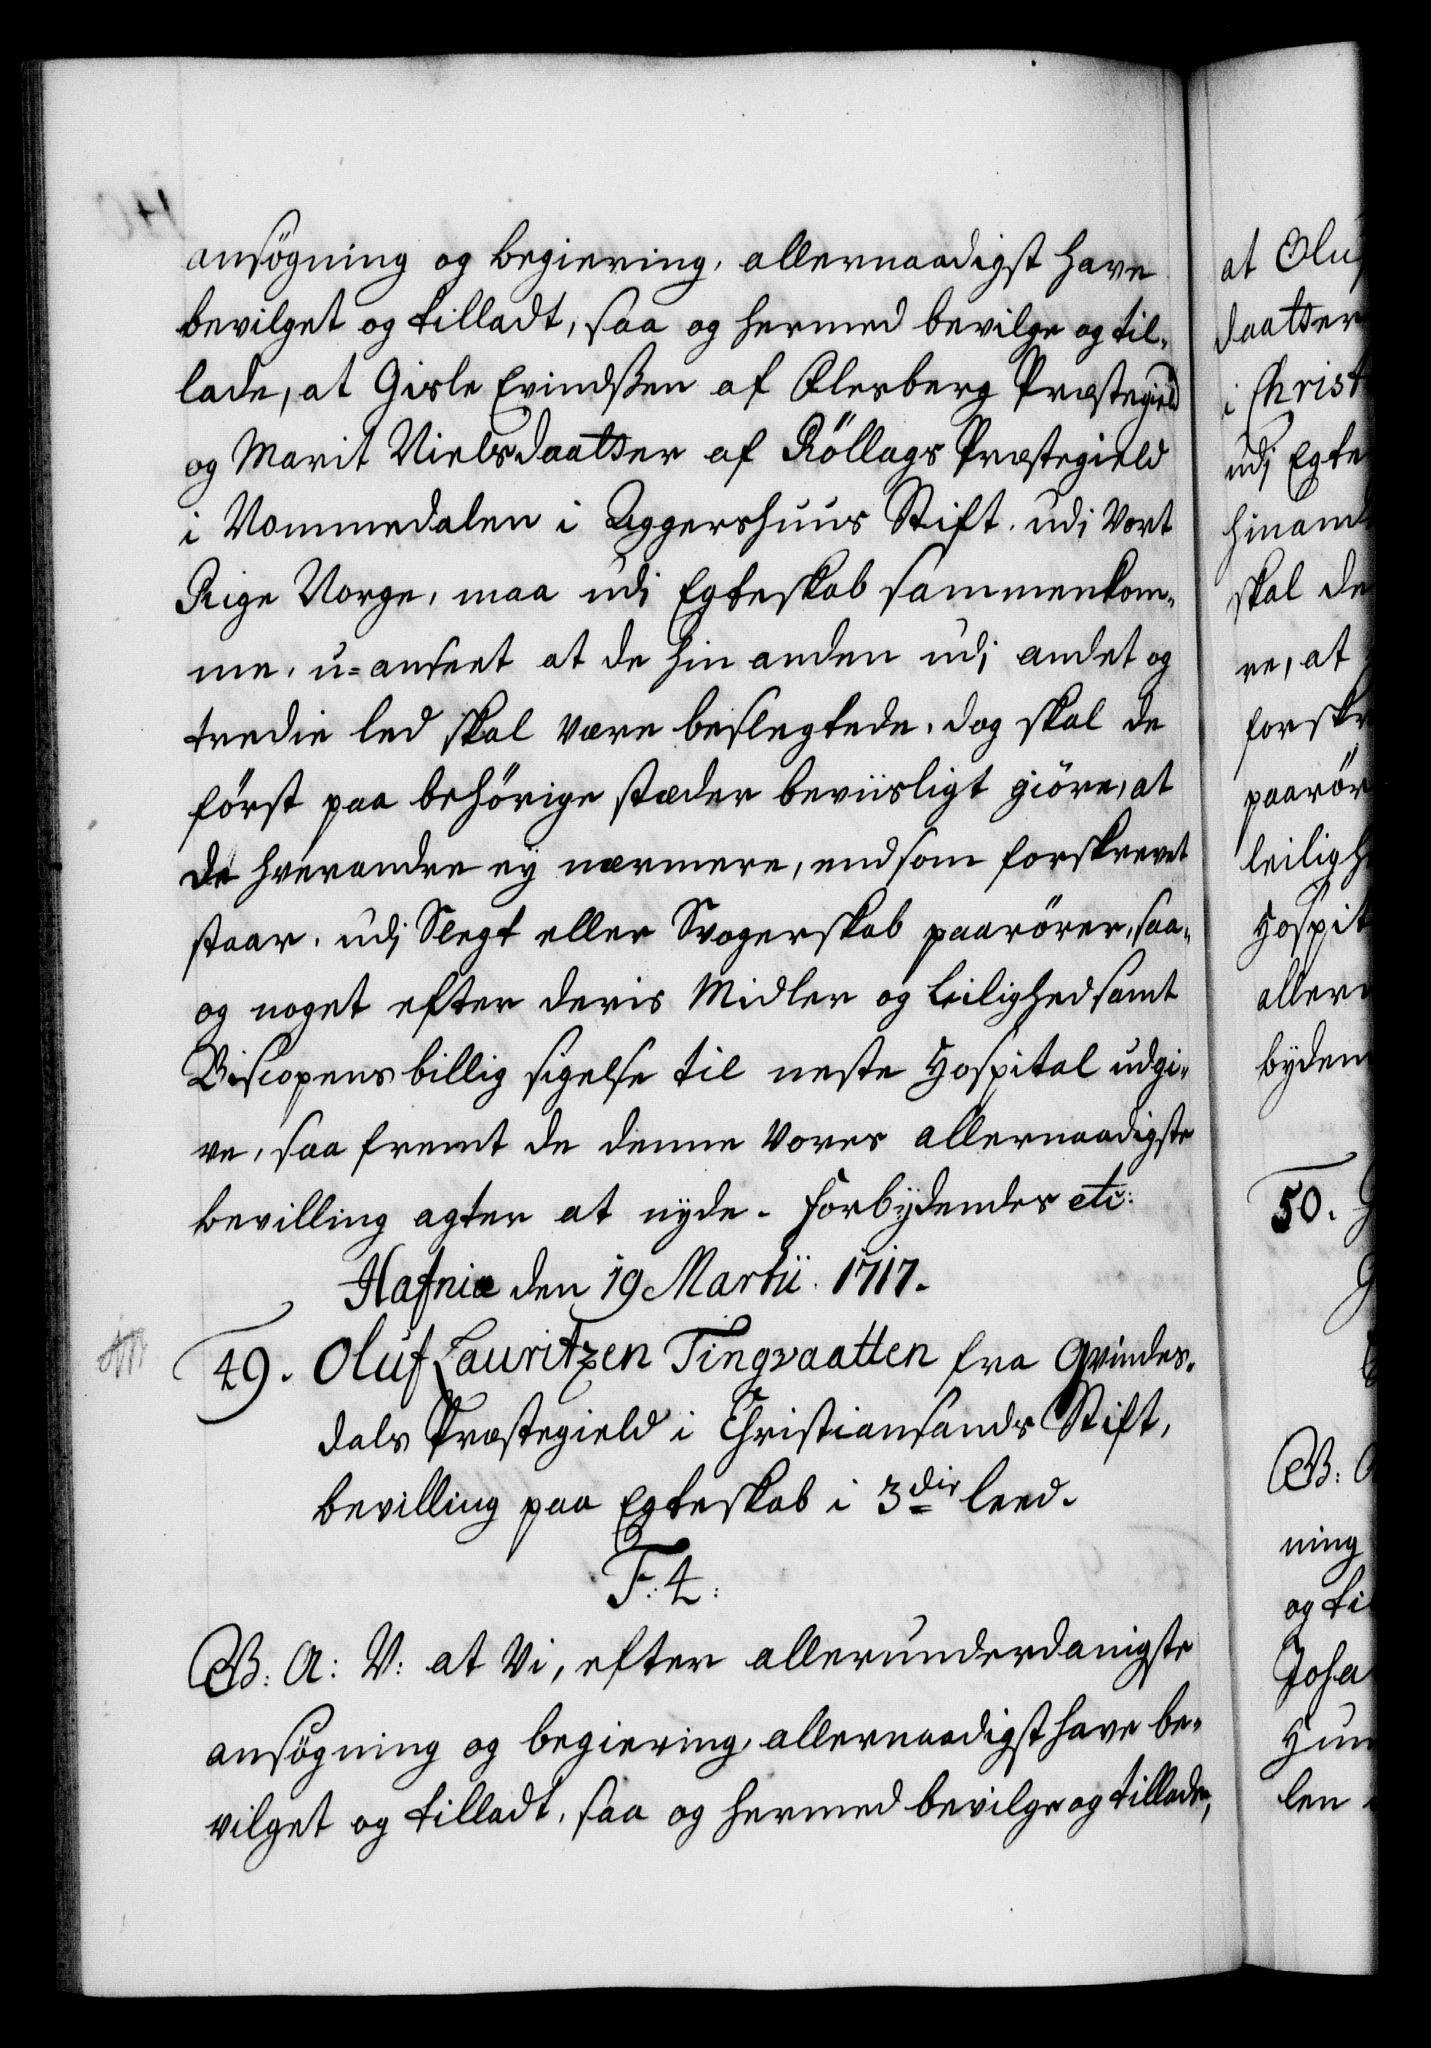 ansögning og begiering, allernaadigst have
bevilget og tilladt, saa og hermed bevilge og til-
lade, at Gisle Evindssen af Flesberg Præstegield
og Marit Nielsdaatter af Röllags Præstegield
i Nommedalen i Aggershuus Stift, udi Vort
Rige Norge, maa udi Egteskab sammenkom-
me, u-anseet at de hin anden udi andet og
tredie led skal være beslegtede, dog skal de
först paa behörige stæder beviisligt giöre, at
de hverandre ey nærmere, end som forskrevet
staar, udi Slegt eller Svogerskab paarörer, saa-
og noget efter deris Midler og leilighed samt
Biscopens billig sigelse til neste Hospital udgi-
ve, saa fremt de denne Vores allernaadigste
bevilling agter at nyde. Forbydendes etc:
Hafniæ den 19 Martii. 1717.
49. Oluf Lauritzen Tingvaatten fra Qvindes-
dals Præstegield i Christiansands Stift,
bevilling paa Egteskab i 3die leed.
F: 4:
G: A: V: at Vi, efter allerunderdanigste
ansögning og begiering, allernaadigst have be-
vilget og tilladt, saa og hermed bevilge og tillade,
at Olu
daatter
i Christ
udi Egte
hinand
skal de
re, at
forskr
paarör
leiligh
Hospit
allern
byden
50.
ning
og til
Joha
Hun
len